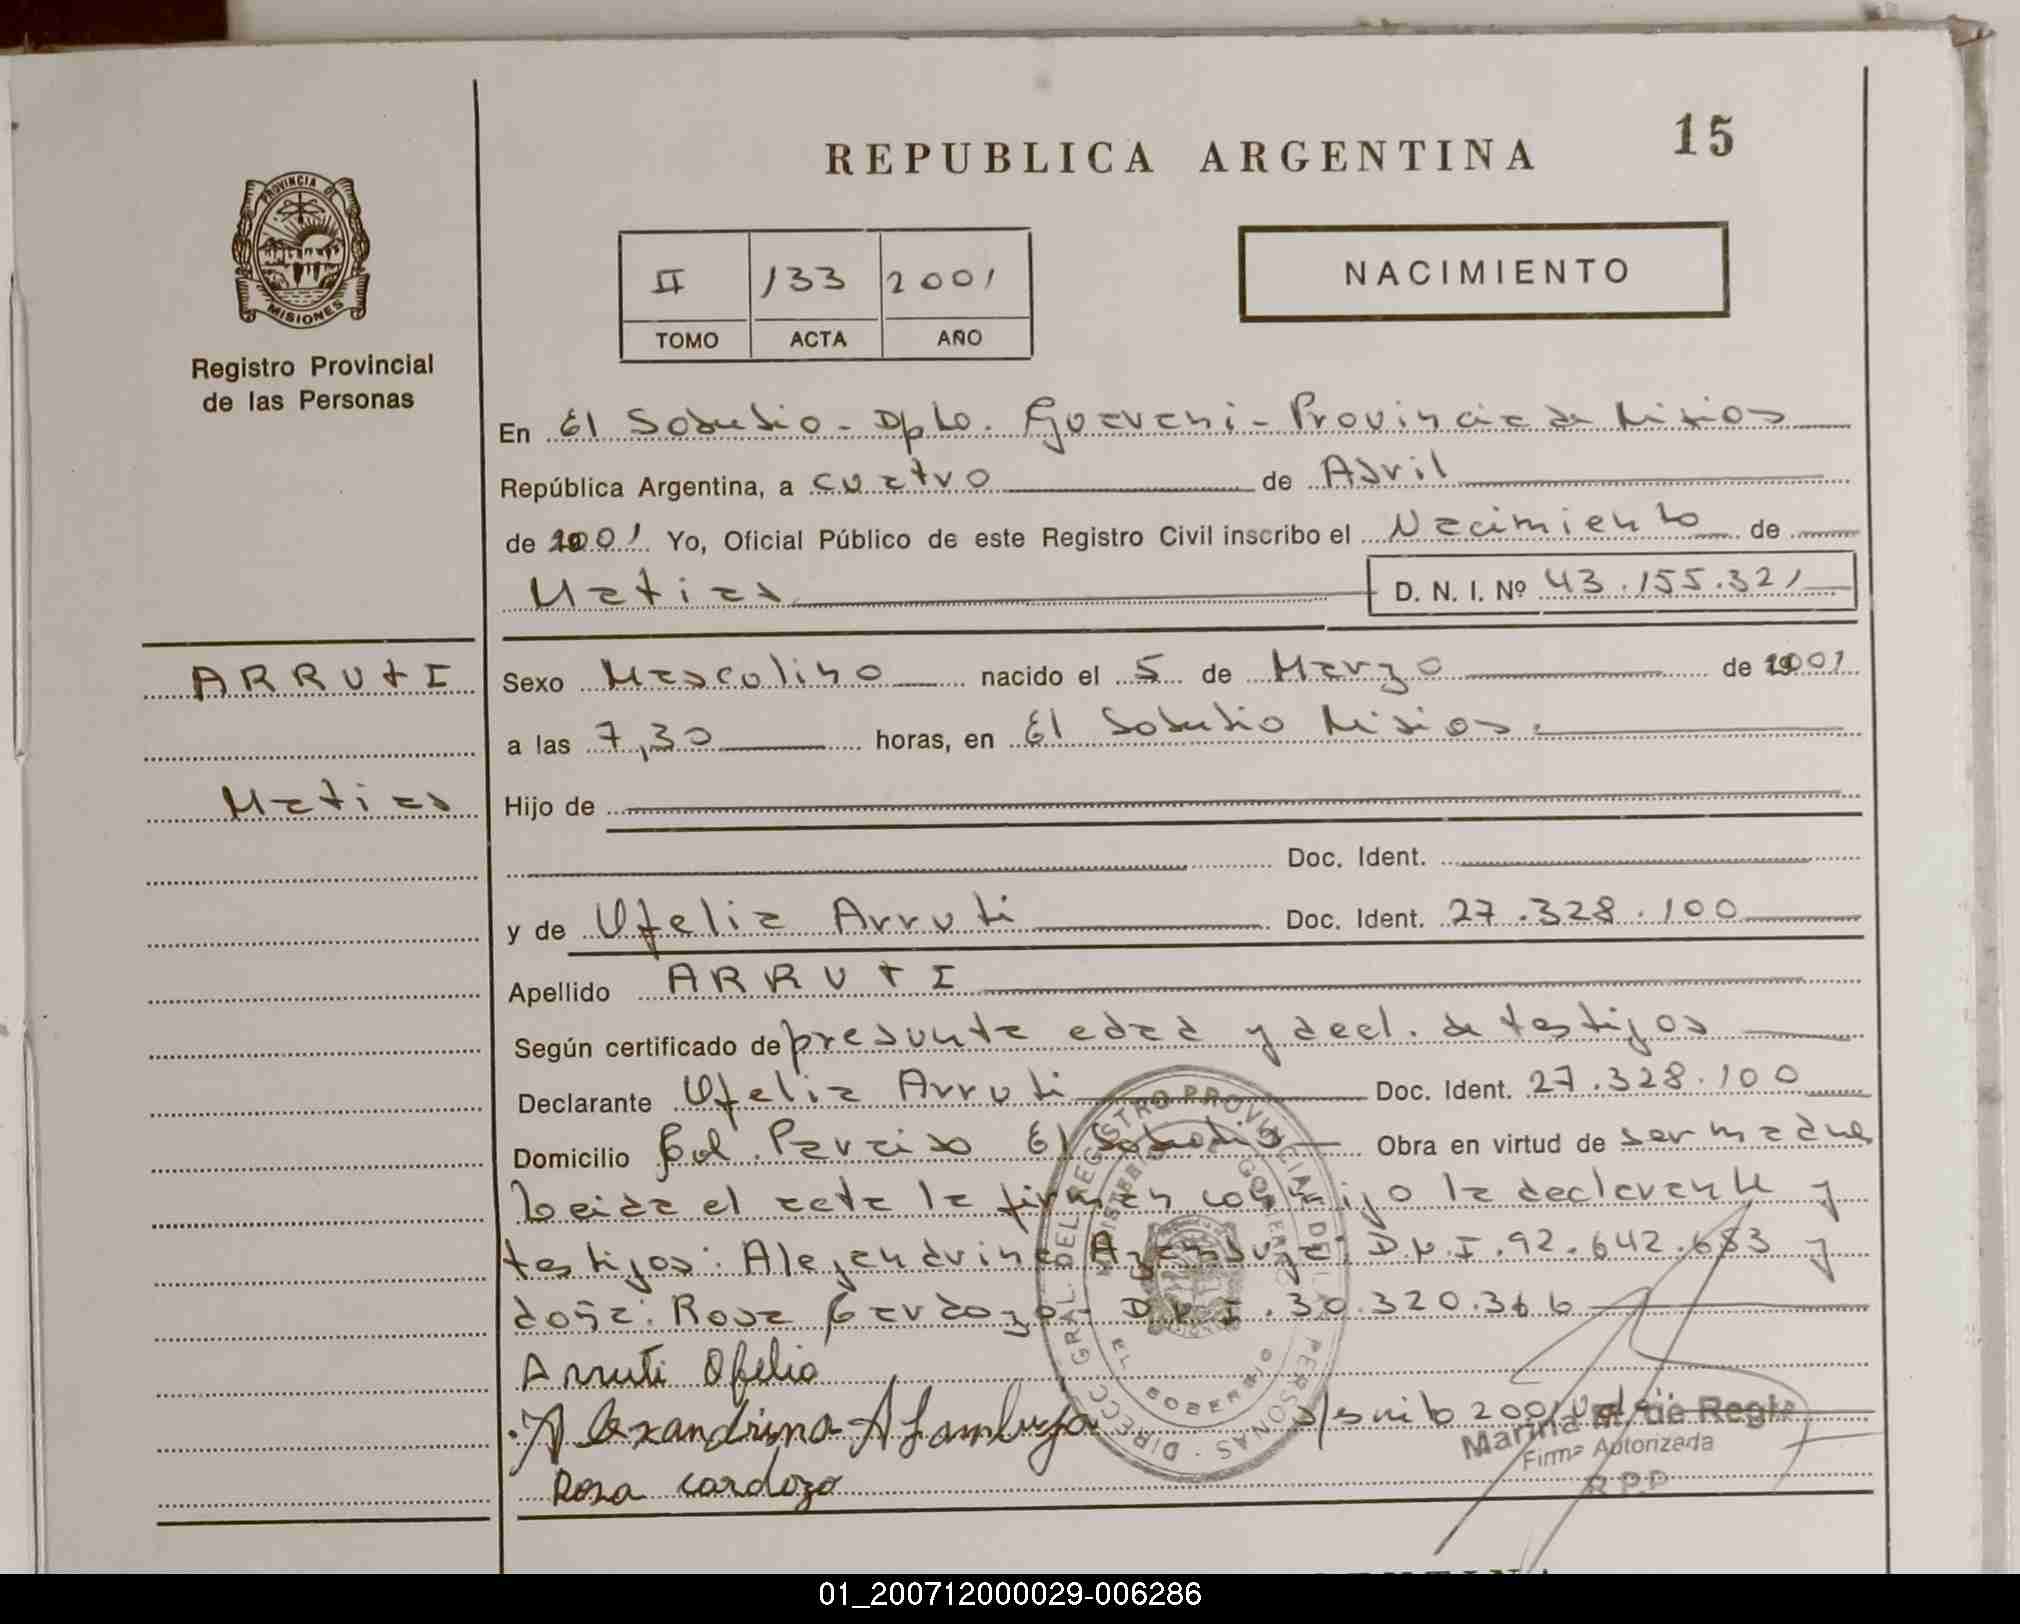 REPUBLICA ARGENTINA
15
PROVINCIA DE
MISIONES
Registro Provincial
de las Personas
II 133 2001
TOMO ACTA AÑO
NACIMIENTO
En El Soberbio - Dpto. Guarani - Provincia de Misiones
República Argentina, a cuatro de Abril
de 2001 Yo, Oficial Público de este Registro Civil inscribo el Nacimiento de
Matias D. N. I. Nº 43.155.321
ARRUTI
Matias
Sexo Masculino nacido el 5 de Marzo de 2001
a las 7,30 horas, en El Soberbio Misiones.
Hijo de
Doc. Ident.
y de Ofelia Arruti Doc. Ident. 27.328.100
Apellido ARRUTI
Según certificado de presunta edad y decl. de testigos
Declarante Ofelia Arruti Doc. Ident. 27.328.100
Domicilio Col. Paraiso El Soberbio Obra en virtud de ser madre
Leida el acta la firman conmigo la declarante y
testigos: Alejandrina Azambuja D.N.I. 92.642.683 y
doña: Rosa Cardozo - D.N.I. 30.320.366
Arruti Ofelia
Alexandrina Azambuja s/escrito 2001 Vale
Rosa cardozo
DIRECC. GRAL. DEL REGISTRO PROVINCIAL DE LAS PERSONAS
MINISTERIO DE GOBIERNO
EL SOBERBIO
Marina de Regis
Firma Autorizada
R.P.P
01_200712000029-006286